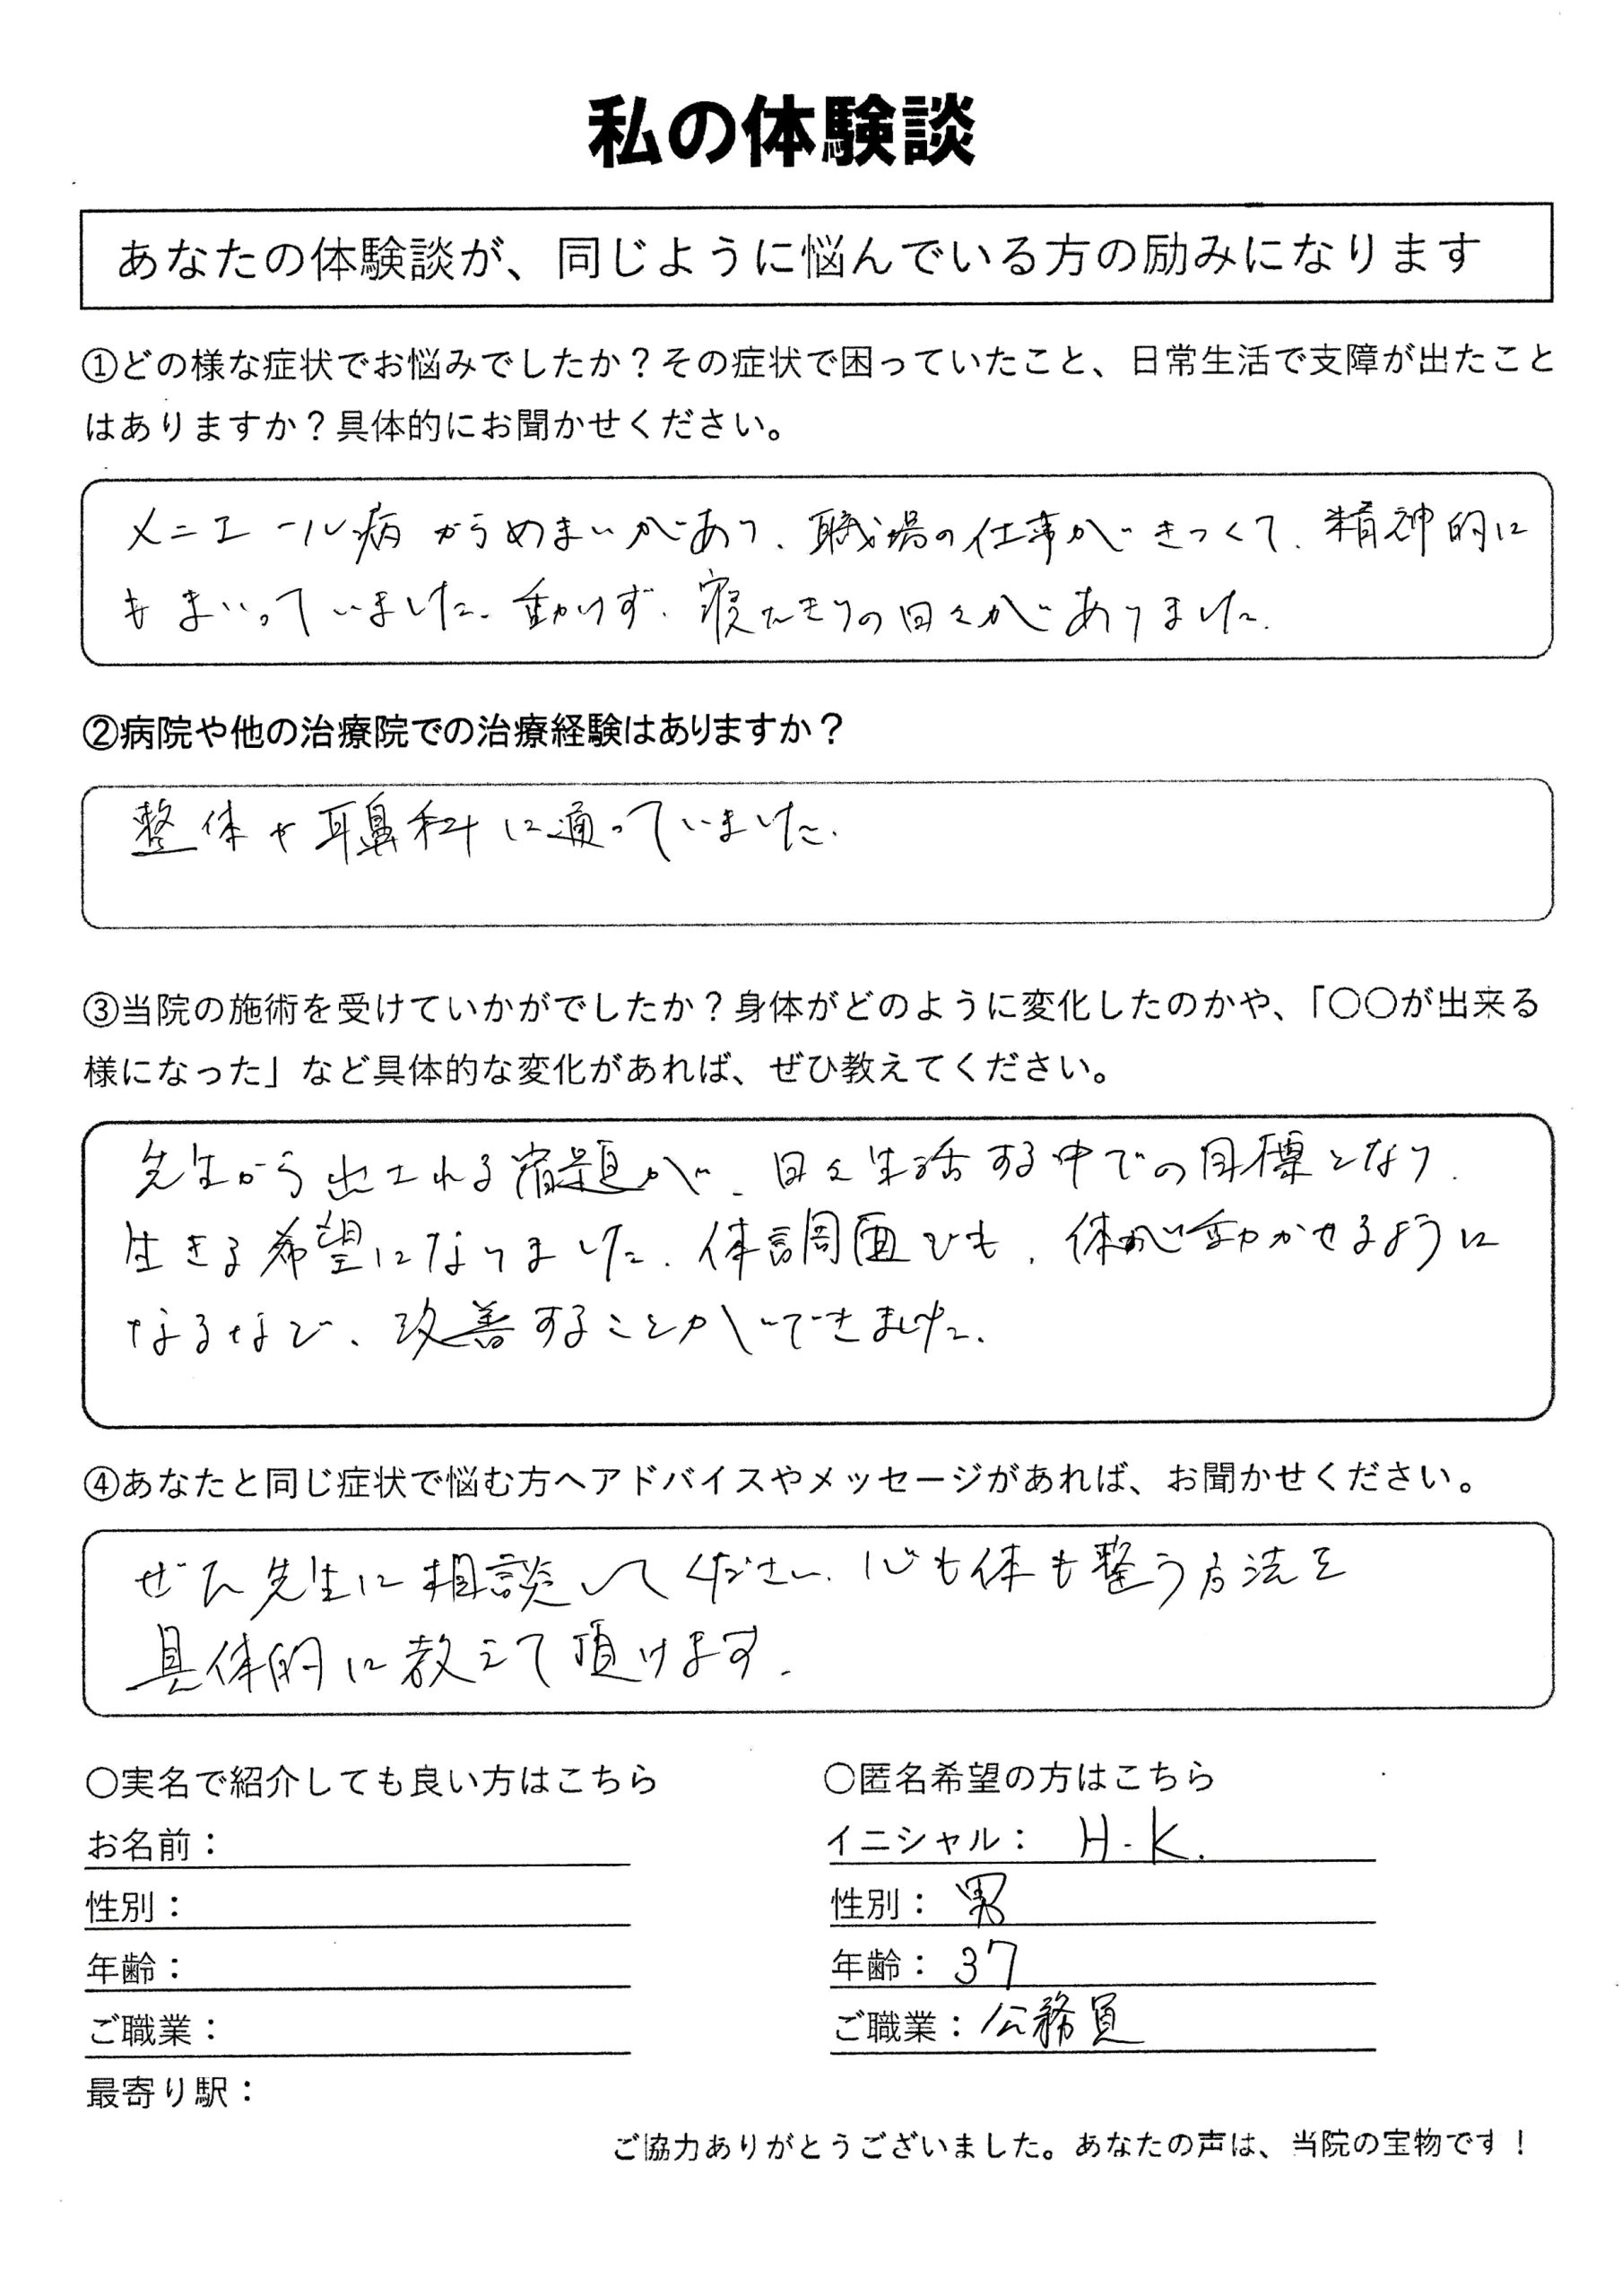 私の体験談
あなたの体験談が、同じように悩んでいる方の励みになります
①どの様な症状でお悩みでしたか？その症状で困っていたこと、日常生活で支障が出たこと
はありますか？具体的にお聞かせください。
メニエール病からめまいがあり、職場の仕事がきつくて、精神的に
もまいっていました。動けず、寝たきりの日々がありました。
②病院や他の治療院での治療経験はありますか？
整体や耳鼻科に通っていました。
③当院の施術を受けていかがでしたか？身体がどのように変化したのかや、「〇〇が出来る
様になった」など具体的な変化があれば、ぜひ教えてください。
先生から出される宿題が、日々生活する中での目標となり、
生きる希望になりました。体調面でも、体が動かせるように
なるなど、改善することができました。
④あなたと同じ症状で悩む方へアドバイスやメッセージがあれば、お聞かせください。
ぜひ先生に相談してください。心も体も整う方法を
具体的に教えて頂けます。
〇実名で紹介しても良い方はこちら
お名前：
性別：
年齢：
ご職業：
最寄り駅：
〇匿名希望の方はこちら
イニシャル： H.K.
性別：男
年齢：37
ご職業：公務員
ご協力ありがとうございました。あなたの声は、当院の宝物です！